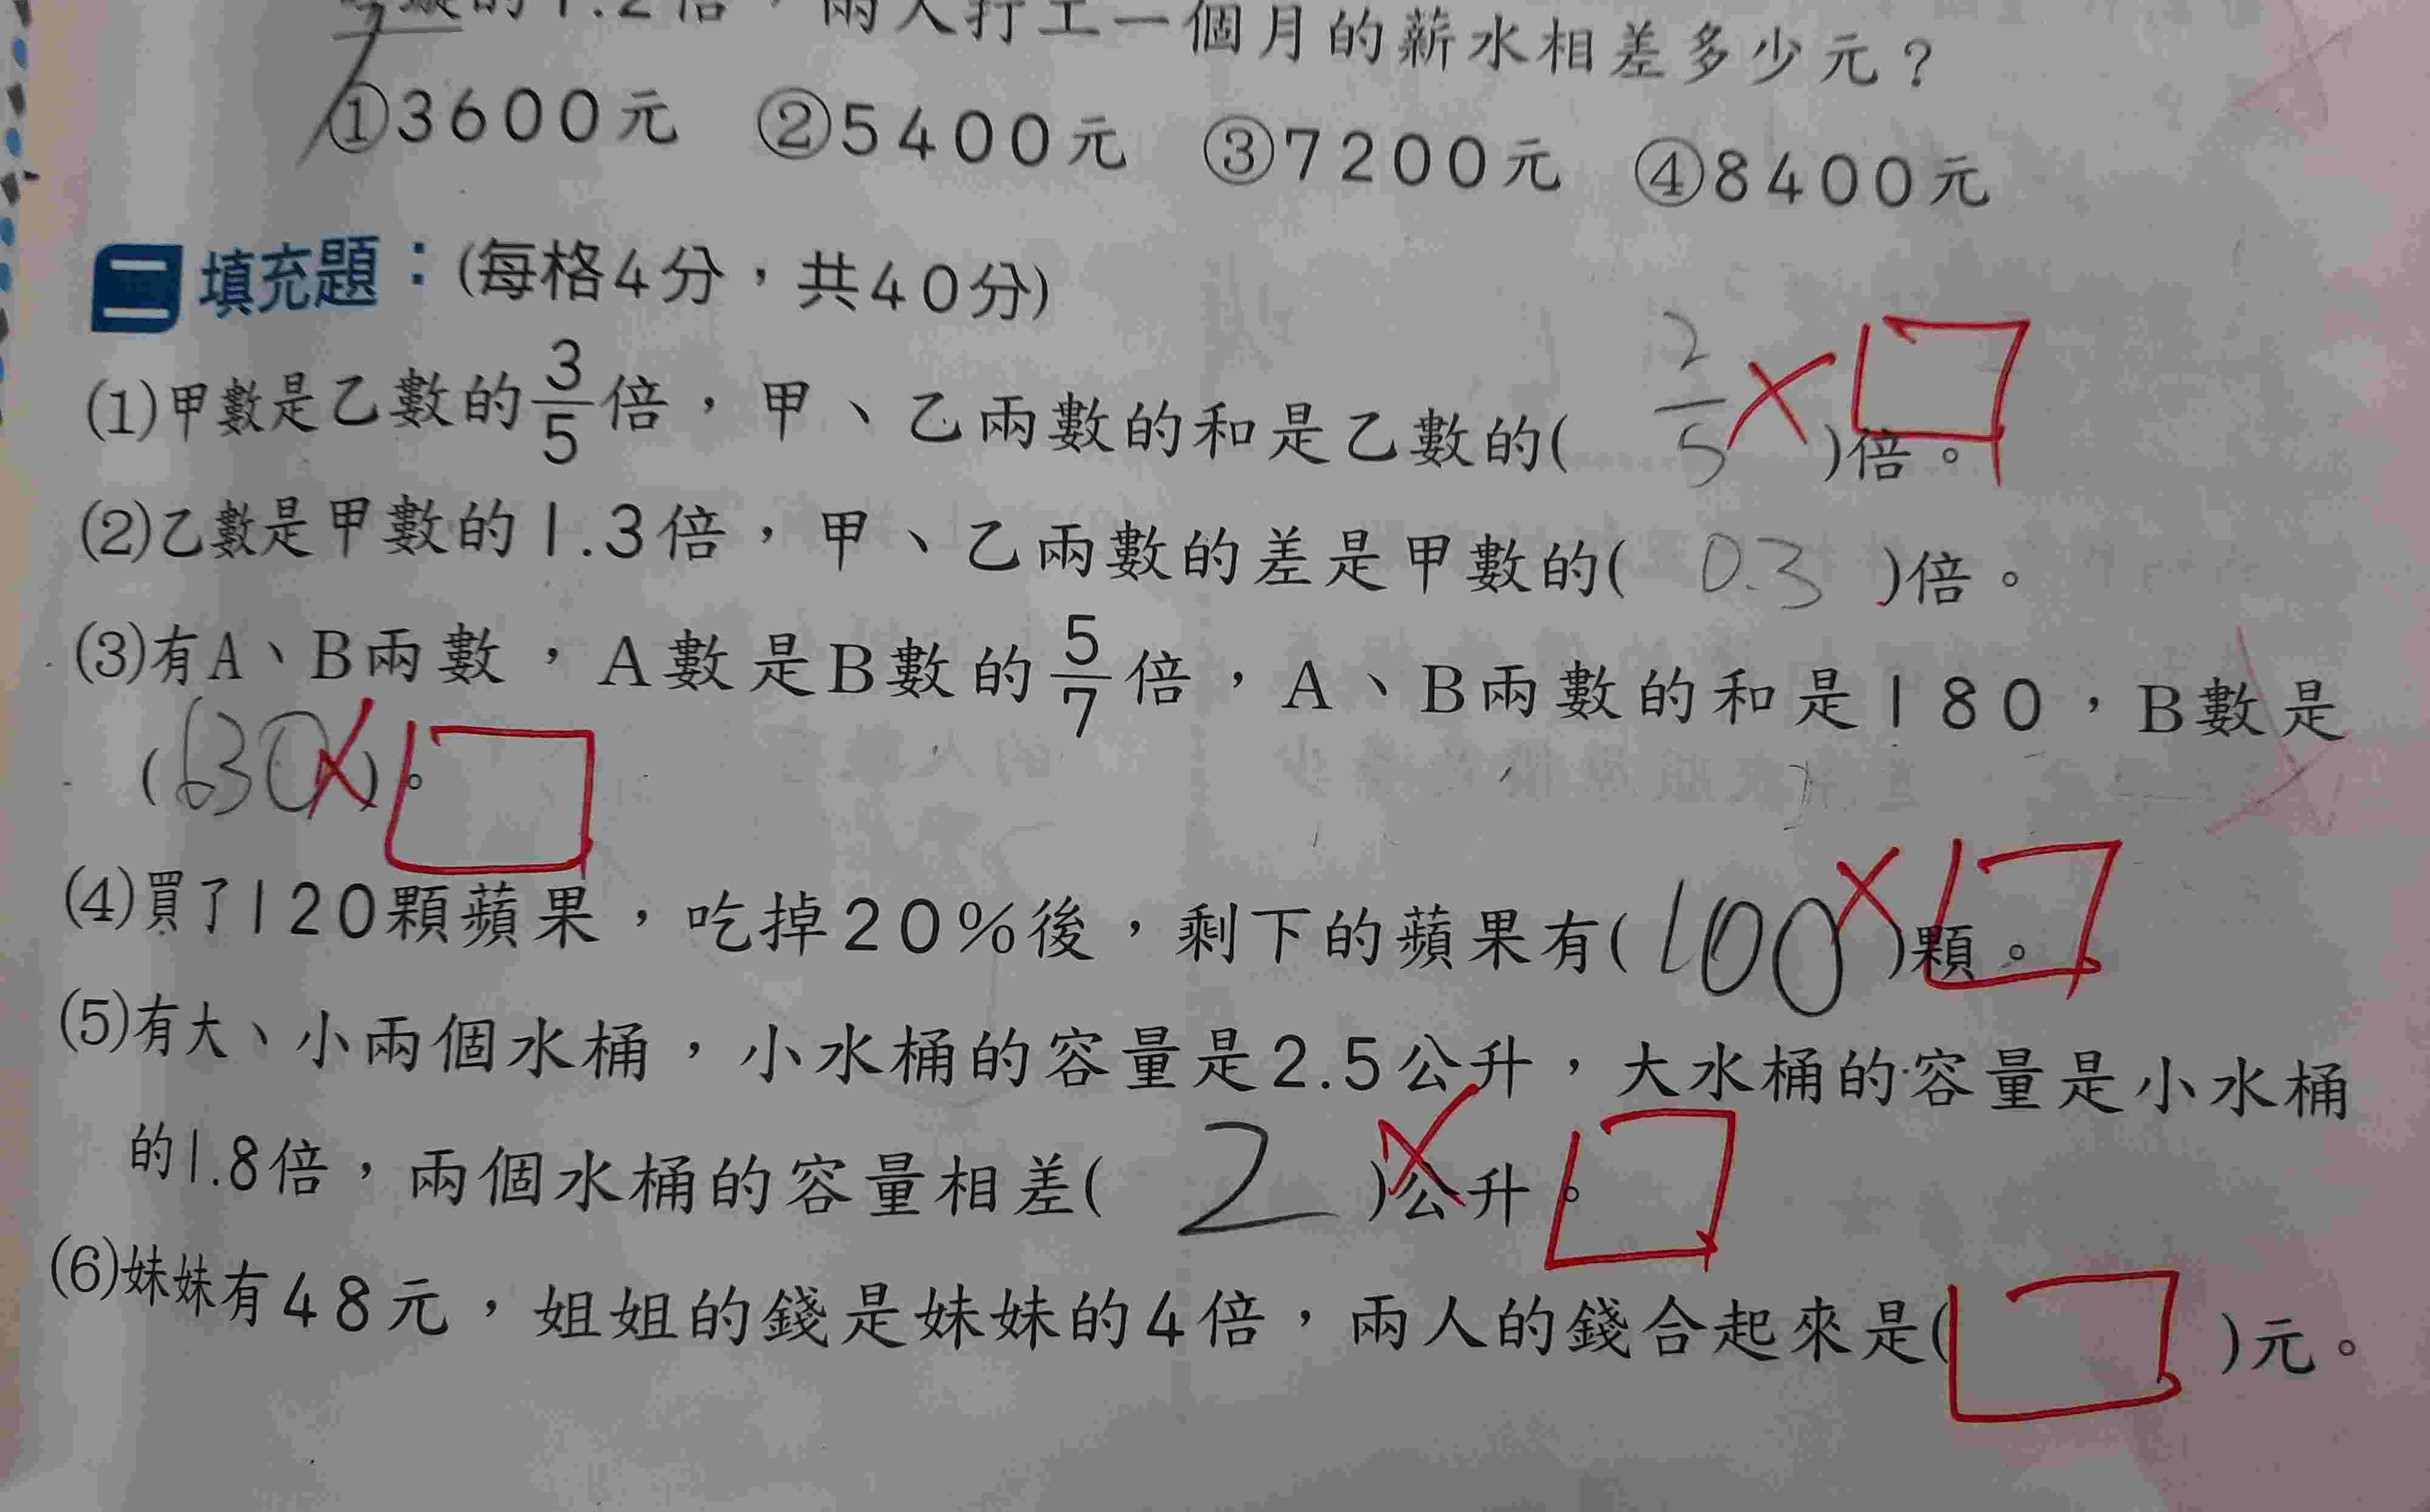 的1.2倍，兩人打工一個月的薪水相差多少元？
①3600元 ②5400元 ③7200元 ④8400元
二 填充題：(每格4分，共40分)
(1)甲數是乙數的3/5倍，甲、乙兩數的和是乙數的( 2/5 )倍。
(2)乙數是甲數的1.3倍，甲、乙兩數的差是甲數的( 0.3 )倍。
(3)有A、B兩數，A數是B數的5/7倍，A、B兩數的和是180，B數是
(630)。
(4)買了120顆蘋果，吃掉20%後，剩下的蘋果有(100)顆。
(5)有大、小兩個水桶，小水桶的容量是2.5公升，大水桶的容量是小水桶
的1.8倍，兩個水桶的容量相差( 2 )公升。
(6)妹妹有48元，姐姐的錢是妹妹的4倍，兩人的錢合起來是( )元。